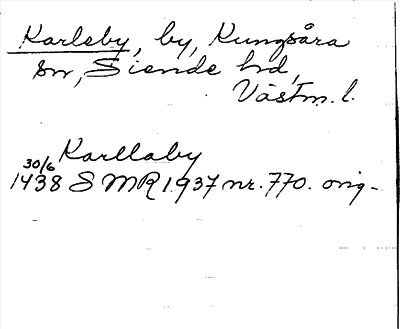 Karleby, by, Kungsåra
sn, Siende hd,
Västm. l.
Karllaby
30/6
1438 SMR 1937 nr. 770. orig-